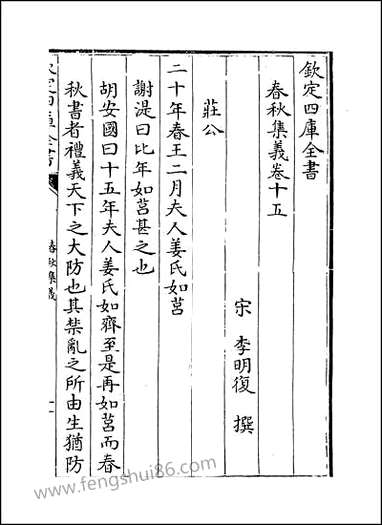 欽定四庫全書
春秋集義卷十五
宋 李明復 撰
莊公
二十年春王二月夫人姜氏如莒
謝湜曰比年如莒甚之也
胡安國曰十五年夫人姜氏如齊至是再如莒而春
秋書者禮義天下之大防也其禁亂之所由生猶防
春秋集義
www.fengshui86.com